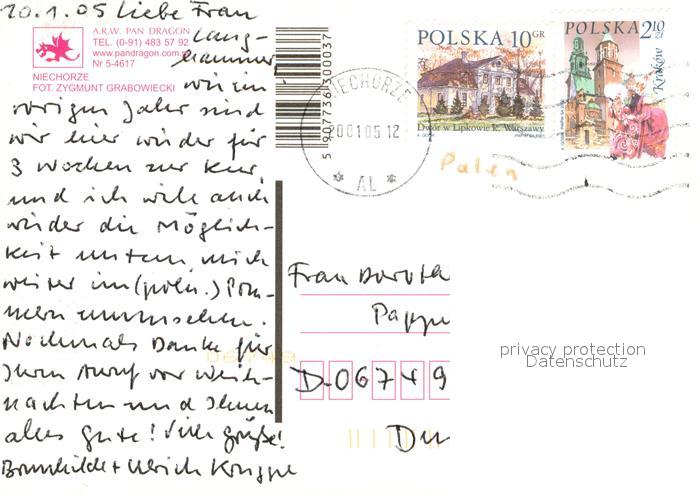 20.1.05 Liebe Frau
Lang-
hammer,
wie im
vorigen Jahr sind
wir hier wieder für
3 Wochen zur Kur,
und ich will auch
wieder die Möglich-
keit nutzen, mich
weiter im (poln.) Pom-
mern umzusehen.
Nochmals Danke für
Ihren Anruf vor Weih-
nachten und Ihnen
alles Gute! Viele Grüße!
Brunhilde + Ulrich
A.R.W. PAN DRAGON
TEL. (0-91) 483 57 92
www.pandragon.com.pl
Nr 5-4617
NIECHORZE
FOT. ZYGMUNT GRABOWIECKI
5 907736 300037
NIECHORZE
200105 12
* AL *
POLSKA 10 GR
Dwór w Lipkowie k. Warszawy
POLSKA 2 10 zł
Kraków
Polen
Frau Dorothe
Pappe
D-06749
06749
privacy protection
Datenschutz